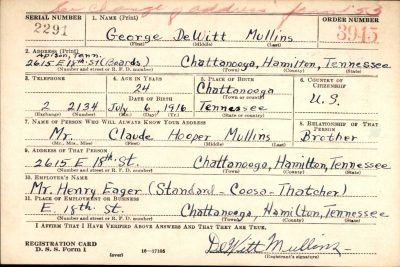 See change of address from '53
SERIAL NUMBER 1. NAME (Print) ORDER NUMBER
2291 George DeWitt Mullins 3945
(First) (Middle) (Last)
2. ADDRESS (Print)
Apison, Tenn.
2615 E 18th St (Boards) Chattanooga, Hamilton, Tennessee
(Number and street or R. F. D. number) (Town) (County) (State)
3. TELEPHONE 4. AGE IN YEARS 5. PLACE OF BIRTH 6. COUNTRY OF CITIZENSHIP
24 Chattanooga
DATE OF BIRTH (Town or county)
2 2134 July 6, 1916 Tennessee U.S.
(Exchange) (Number) (Mo.) (Day) (Yr.) (State or country)
7. NAME OF PERSON WHO WILL ALWAYS KNOW YOUR ADDRESS 8. RELATIONSHIP OF THAT PERSON
Mr. Claude Hooper Mullins Brother
(Mr., Mrs., Miss) (First) (Middle) (Last)
9. ADDRESS OF THAT PERSON
2615 E 18th St. Chattanooga, Hamilton, Tennessee
(Number and street or R. F. D. number) (Town) (County) (State)
10. EMPLOYER'S NAME
Mr. Henry Eager (Standard-Coosa-Thatcher)
11. PLACE OF EMPLOYMENT OR BUSINESS
E. 18th St. Chattanooga, Hamilton, Tennessee
(Number and street or R. F. D. number) (Town) (County) (State)
I AFFIRM THAT I HAVE VERIFIED ABOVE ANSWERS AND THAT THEY ARE TRUE.
REGISTRATION CARD
D. S. S. Form 1 (over) 16-17105 DeWitt Mullins
(Registrant's signature)